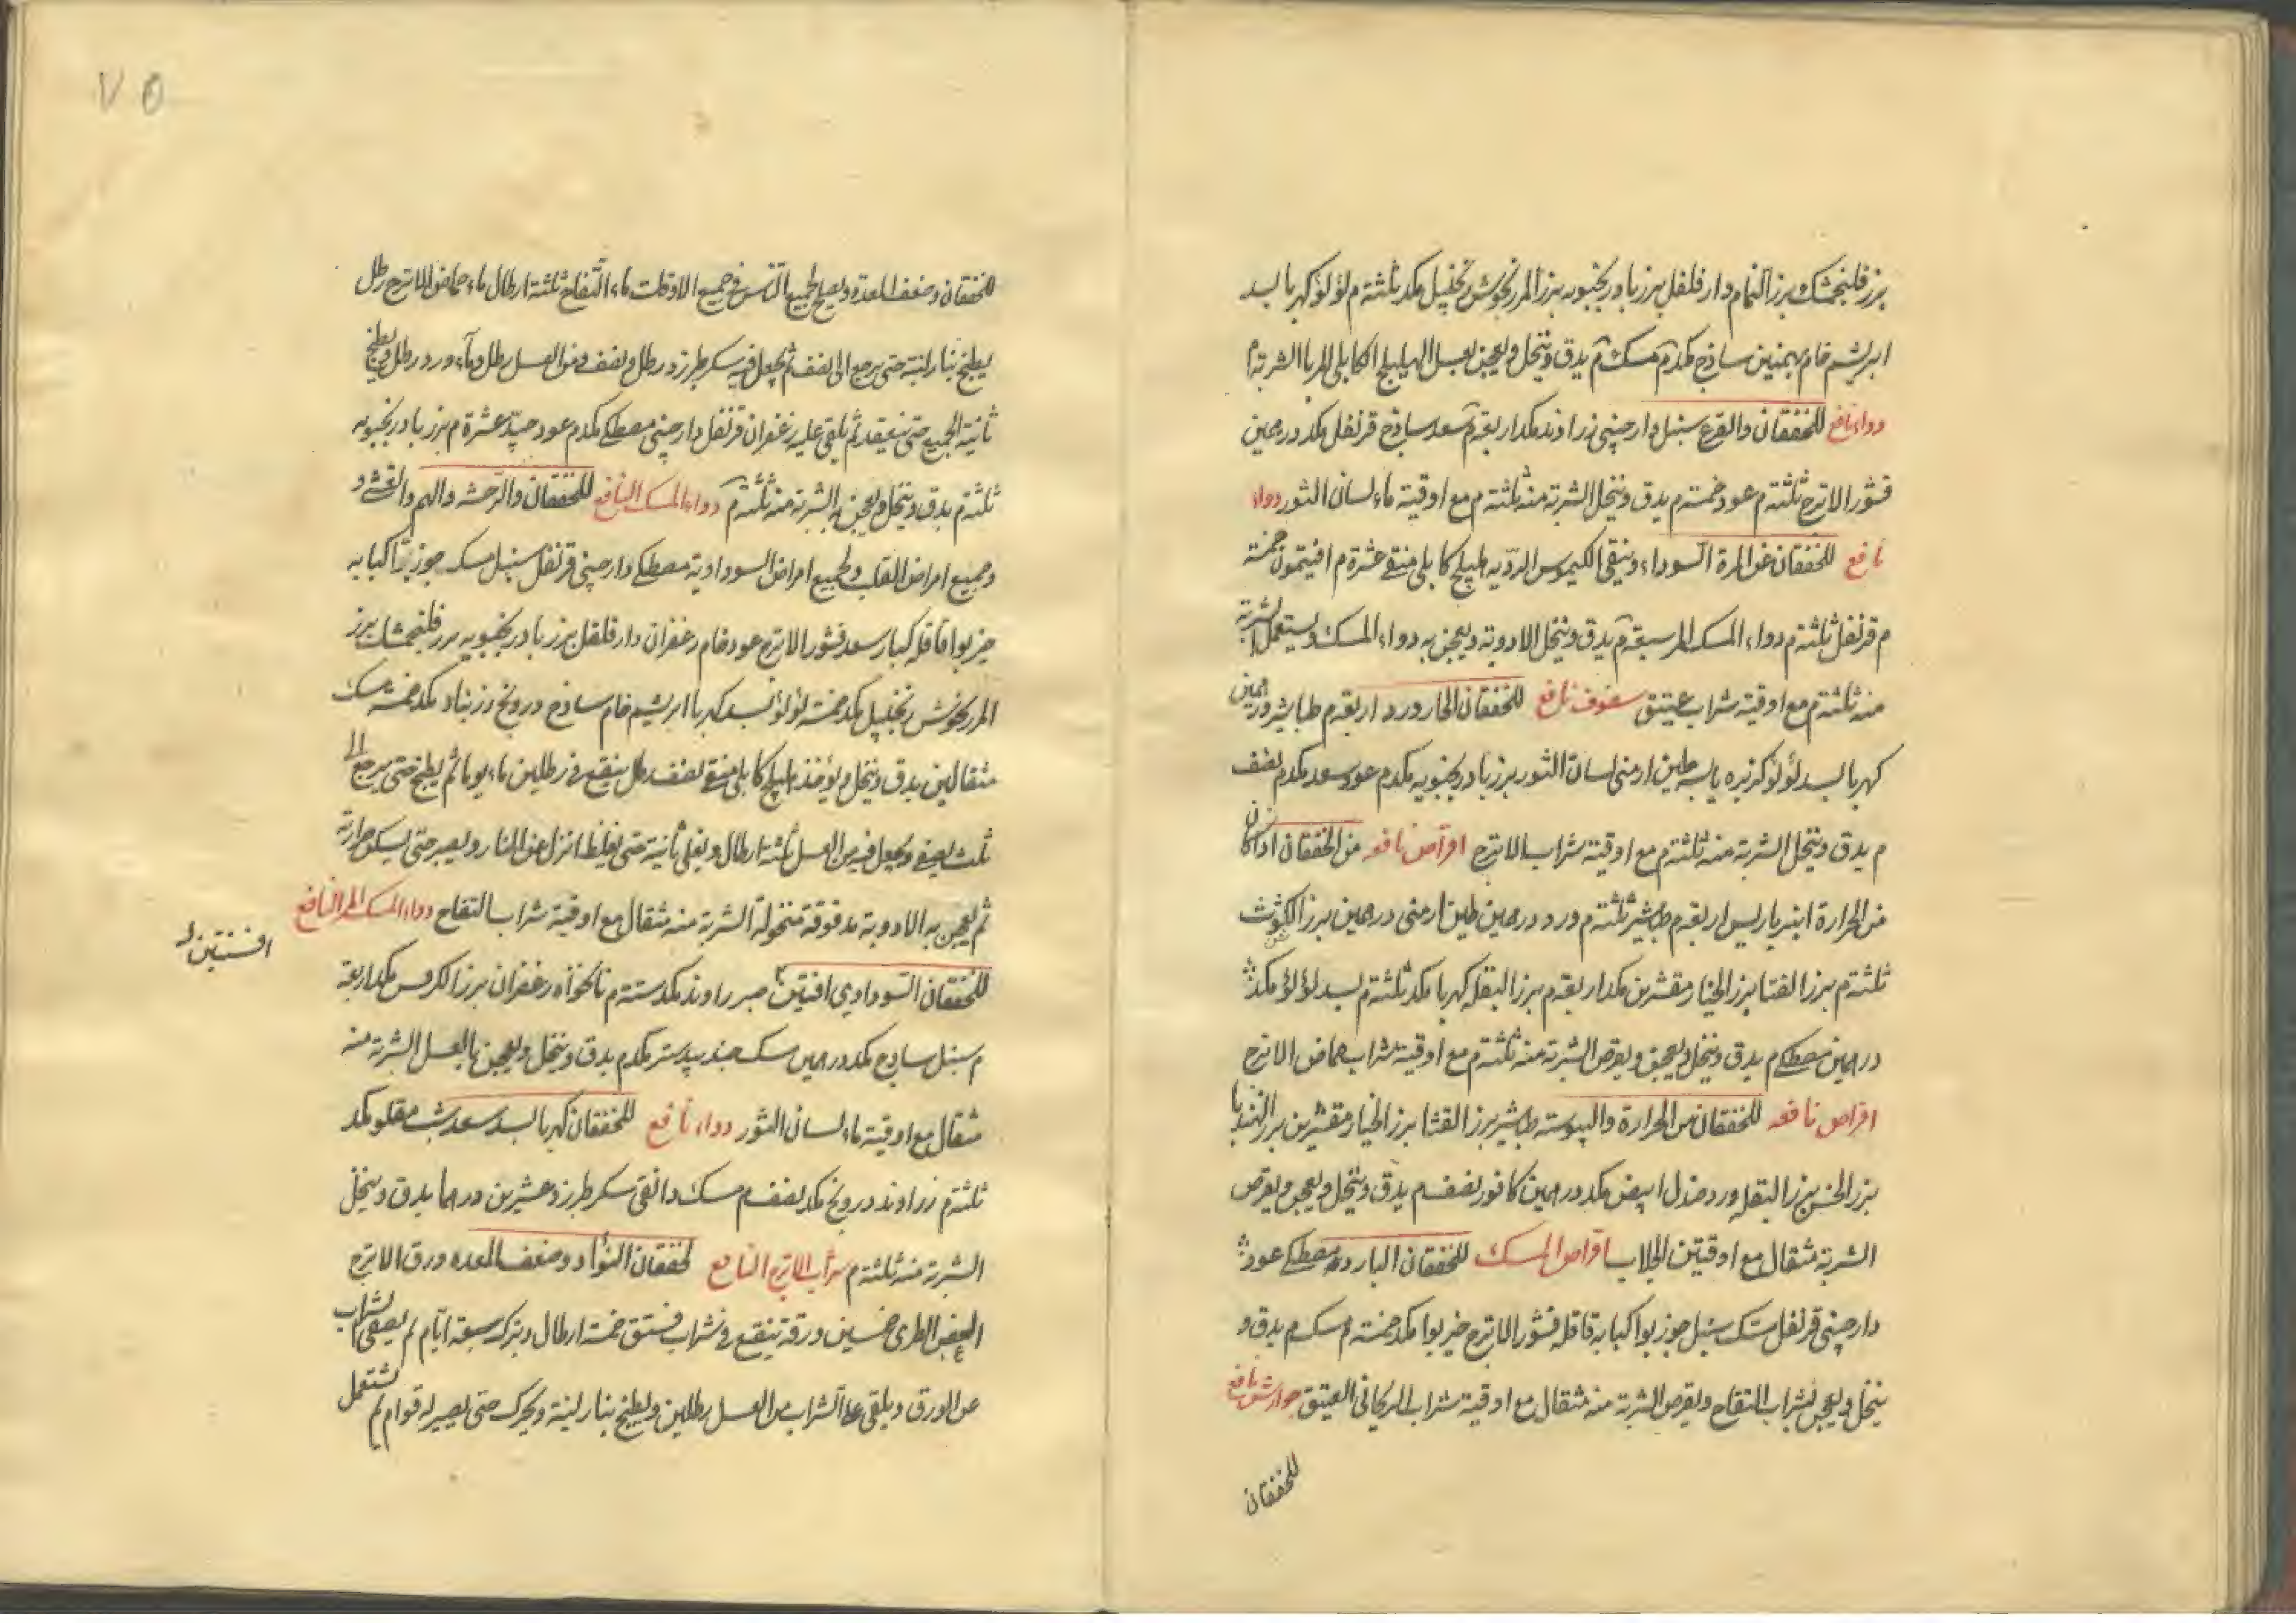 بزر فلنجمشك بزر النمام دار فلفل بزر بادرنجبويه بزر المرزنجوش زنجبيل مكد ثلثة م لؤلؤ كهربا بسد
ابريشم خام بهمنين ساذج مكد م مسك م يدق وينخل ويعجن بعسل الهليلج الكابلى المربا الشربة م
دواء نافع للخفقان والقرع سنبل دارجينى زراوند مكد اربعة م سعد ساذج قرنفل مكد درهمين
قشور الاترج ثلثة م عود خمسة م يدق وينخل الشربة منه ثلثة م مع اوقية ماء لسان الثور دواء
نافع للخفقان عن المرة السوداء وينقى الكيموس الرديه هليلج كابلى منقى عشرة م افتيمون خمسة
م قرنفل ثلثة م دواء المسك المر سبعة م يدق وينخل الادوية ويعجن به دواء المسك ويستعمل الشربة
منه ثلثة م مع اوقية شراب عتيق سفوف نافع للخفقان الحار ورد اربعة م طباشير درهمين
كهربا بسد لؤلؤ كزبره يابسه طين ارمنى لسان الثور بزر بادرنجبويه مكد م عود سعد مكد م نصف
م يدق وينخل الشربة منه ثلثة م مع اوقية شراب الاترج اقراص نافعه من الخفقان اذا كان
من الحرارة انبرباريس اربعة م طباشير ثلثة م ورد درهمين طين ارمنى درهمين بزر الكشوث
ثلثة م بزر القثا بزر الخيار مقشرين مكد اربعة م بزر البقله كهربا مكد ثلثة م بسد لؤلؤ مكد
درهمين مصطكى م يدق وينخل ويعجن ويقرص الشربة منه ثلثة م مع اوقية شراب حماض الاترج
اقراص نافعه للخفقان من الحرارة واليبوسة طباشير بزر القثا بزر الخيار مقشرين بزر الهندبا
بزر الخس بزر البقله ورد صندل ابيض مكد درهمين كافور نصف م يدق وينخل ويعجن ويقرص
الشربة مثقال مع اوقيتين الجلاب اقراص المسك للخفقان البارد مصطكى عود
دارجينى قرنفل مسك سنبل جوز بوا كبابه قاقله قشور الاترج خيربوا مكد خمسة م مسك م يدق و
ينخل ويعجن بشراب التفاح ويقرص الشربة منه مثقال مع اوقية شراب الريحانى العتيق جوارش نافع
للخفقان
٧٥
للخفقان وضعف المعدة ويصلح لجميع الناس فى جميع الاوقات ماء التفاح ثلثة ارطال ماء حماض الاترج رطل
يطبخ بنار لينة حتى يرجع الى نصف ثم يجعل فيه سكر طبرزد رطل ونصف ومن العسل رطل وماء ورد رطل ويطبخ
ثانية الجميع حتى ينعقد ثم يلقى عليه زعفران قرنفل دارجينى مصطكى مكد م عود جيد عشرة م بزر بادرنجبويه
ثلثة م يدق وينخل ويعجن به الشربة منه ثلثة م دواء المسك النافع للخفقان والوحشة والهم والغشى و
وجميع امراض القلب ولجميع امراض السوداوية مصطكى دارجينى قرنفل سنبل مسك جوز بوا كبابه
خيربوا قاقله كبار سعد قشور الاترج عود خام زعفران دار فلفل بزر بادرنجبويه بزر فلنجمشك بزر
المرزنجوش زنجبيل مكد خمسة لؤلؤ بسد كهربا ابريشم خام ساذج درونج زرنباد مكد خمسة مسك
مثقالين يدق وينخل ويؤخذ هليلج كابلى منقى نصف رطل ينقع فى رطلين ماء يوما ثم يطبخ حتى يرجع الى
ثلث يصفى ويجعل فيه من العسل ثلثة ارطال ويغلى ثانية حتى يغلظ انزل عن النار ويصبر حتى يسكن حرارته
ثم يعجن به الادوية مدقوقة منخولة الشربة منه مثقال مع اوقية شراب التفاح دواء المسك المر النافع
للخفقان السوداوى افتيمن صبر راوند مكد ستة م نانخواه زعفران بزر الكرفس مكد اربعة
افسنتين
م سنبل ساذج مكد درهمين مسك جندبيدستر مكد م يدق وينخل ويعجن بالعسل الشربة منه
مثقال مع اوقية ماء لسان الثور دواء نافع للخفقان كهربا بسد سعد شب مقلو مكد
ثلثة م زراوند درونج مكد نصف م مسك دانقى سكر طبرزد عشرين درهما يدق وينخل
الشربة منه ثلثة م شراب الاترج النافع لخفقان الفؤاد وضعف المعده ورق الاترج
الغض الطرى خمسين ورقة ينقع فى شراب فستق خمسة ارطال ويترك سبعة ايام ثم يصفى الشراب
عن الورق ويلقى على الشراب من العسل رطلين ويطبخ بنار لينة ويحرك حتى يصير له قوام ثم يستعمل